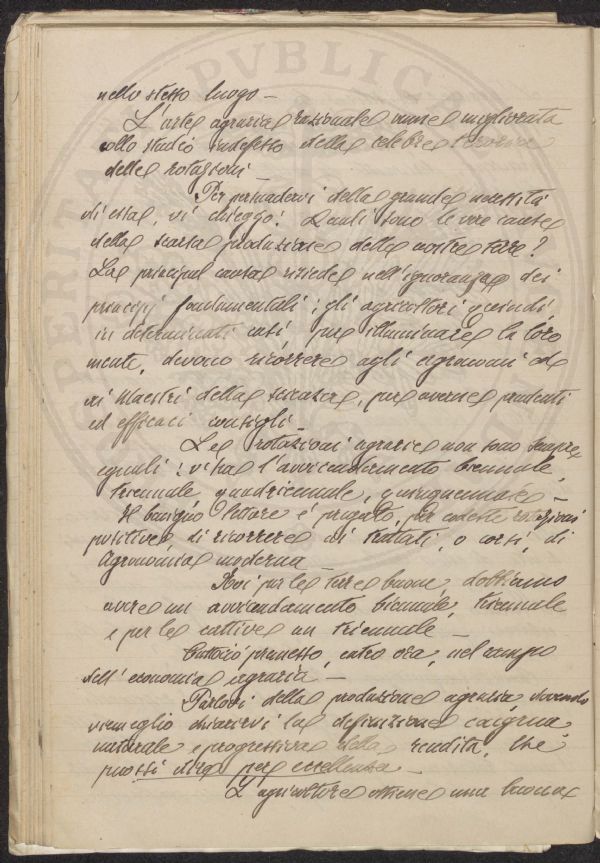 nello stesso luogo —
L'arte agraria razionale venne migliorata
collo studio indefesso della celebre teoria
delle rotazioni —
Per persuadervi della grande necessità
di essa, vi chieggo: Quali sono le vere cause
della scarsa produzione delle nostre terre?
La principal causa risiede nell'ignoranza dei
principj fondamentali; gli agricoltori quindi,
in determinati casi, per illuminare la loro
mente, devono ricorrere agli agronomi ed
ai Maestri della scienza, per averne prudenti
ed efficaci consigli —
Le rotazioni agrarie non sono sempre
eguali: vi ha l'avvicendamento biennale,
triennale, quadriennale, quinquennale —
Il benigno lettore è pregato, per codeste rotazioni
positive, di ricorrere ai trattati, o corsi, di
Agronomia moderna —
Noi per le terre buone dobbiamo
avere un avvicendamento biennale, triennale
e per le cattive un triennale —
Tuttociò premesso, entro ora, nel campo
dell'economia agraria —
Parlovi della produzione agraria, dovendo
viemeglio chiarirvi la definizione
naturale e progressiva della rendita, che
puossi dire per eccellenza —
L'agricoltore ottiene una buona